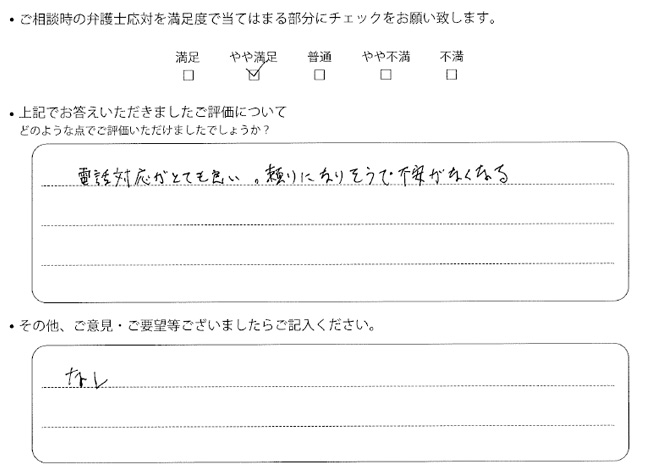 • ご相談時の弁護士応対を満足度で当てはまる部分にチェックをお願い致します。
満足 やや満足 普通 やや不満 不満
□ ☑ □ □ □
• 上記でお答えいただきましたご評価について
どのような点でご評価いただけましたでしょうか？
電話対応がとても良い。頼りになりそうで不安がなくなる
• その他、ご意見・ご要望等ございましたらご記入ください。
なし